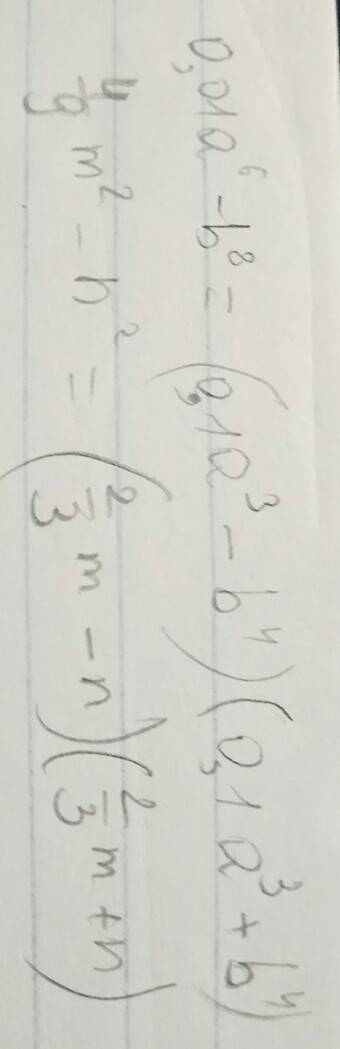 0,01a⁶ - b⁸ = (0,1a³ - b⁴)(0,1a³ + b⁴)
4/9 m² - n² = (2/3 m - n)(2/3 m + n)